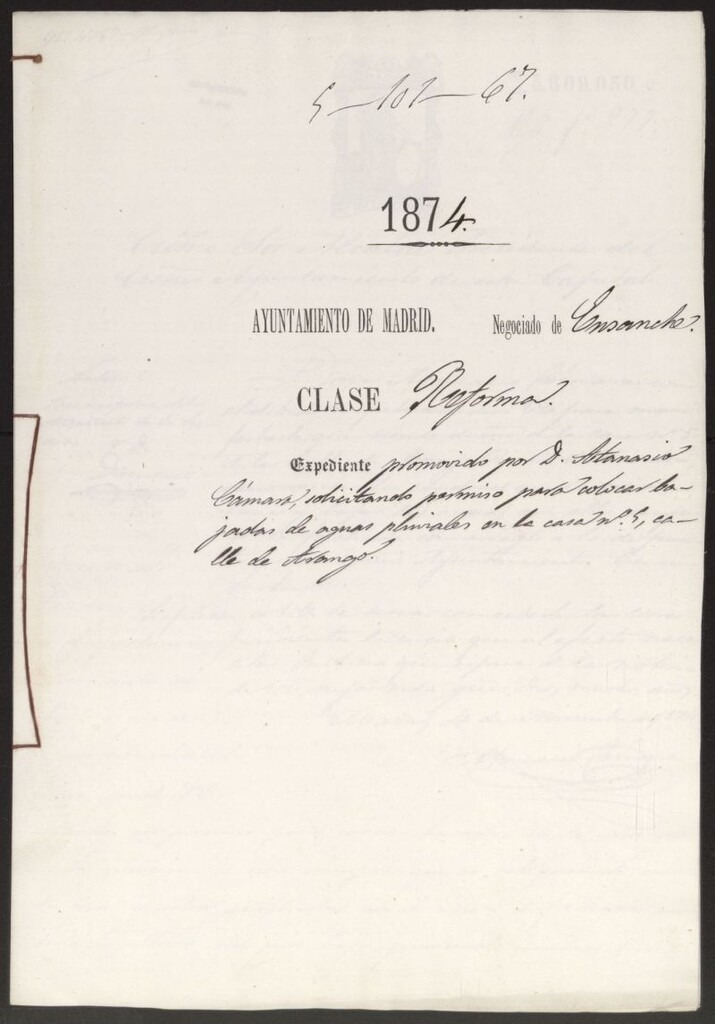 5-101-67.
1874.
AYUNTAMIENTO DE MADRID. Negociado de Ensanche.
CLASE Reforma.
Expediente promovido por D. Atanasio
Cámara, solicitando permiso para colocar ba-
jadas de aguas pluviales en la casa nº. 5, ca-
lle de Arango.